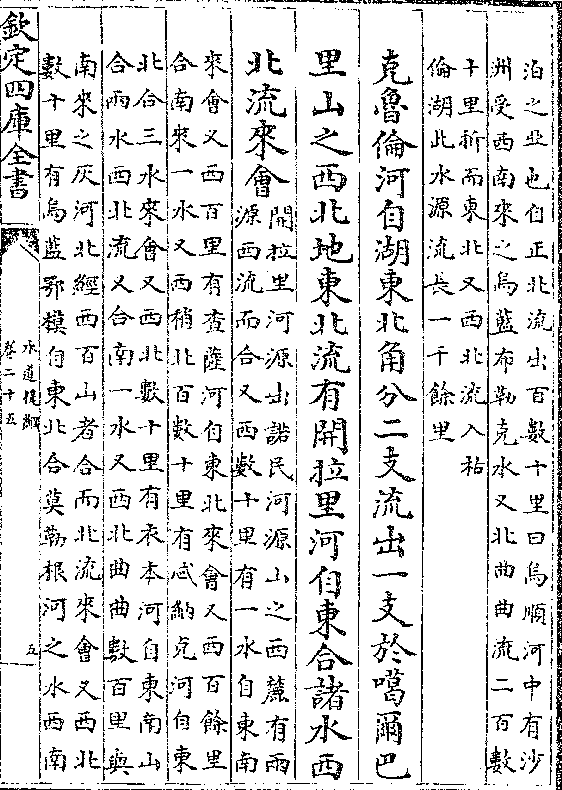 泊之北也自正北流出百數十里曰烏順河中有沙
州受西南來之烏藍布勒克水又北曲曲流二百數
十里折而東北又西北流入枯
倫湖此水源流長一千餘里
克魯倫河自湖東北角分二支流出一支於噶爾巴
里山之西北地東北流有開拉里河自東合諸水西
北流來會
開拉里河源出諾民河源山之西麓有兩
源西流而合又西數十里有一水自東南
來會又西百里有查薩河自東北來會又西百餘里
合南來一水又西稍北百數十里有忒納克河自東
北合三水來會又西北數十里有衣本河自東南山
合兩水西北流又合南一水又西北曲曲數百里與
南來之灰河北經西百山者合而北流來會又西北
數十里有烏藍鄂模自東北合莫勒根河之水西南
欽定四庫全書
水道提綱
卷二十五
五